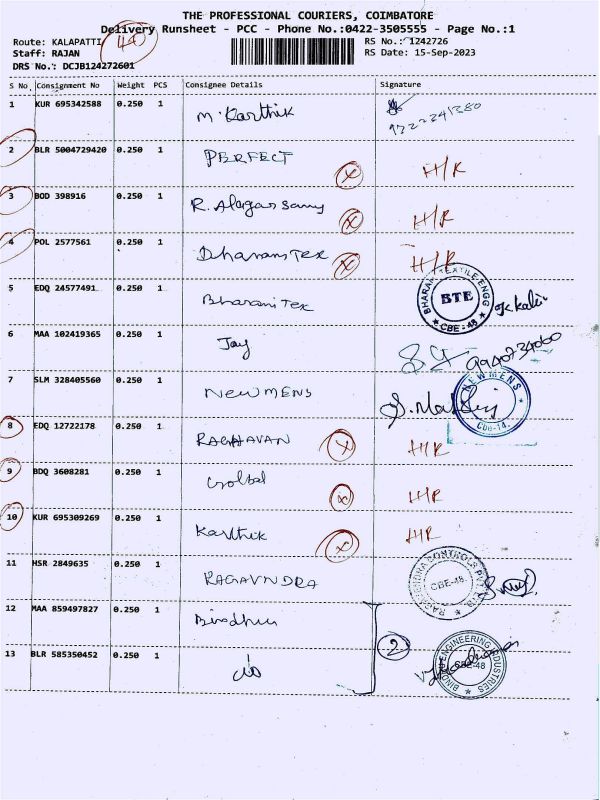 THE PROFESSIONAL COURIERS, COIMBATORE
Delivery Runsheet - PCC - Phone No.:0422-3505555 - Page No.:1
Route: KALAPATTI
RS No.: 1242726
Staff: RAJAN
RS Date: 15-Sep-2023
DRS No.: DCJB124272601
S No Consignment No Weight PCS Consignee Details Signature
1 KUR 695342588 0.250 1 M. Karthik
2 BLR 5004729420 0.250 1 PERFECT X H/R
3 BOD 398916 0.250 1 R. Alagarsamy X H/R
4 POL 2577561 0.250 1 Dharani Tex X H/R
5 EDQ 24577491 0.250 1 Bharani Tex BTE CBE-48
6 MAA 102419365 0.250 1 Jay 9940734060
7 SLM 328405560 0.250 1 NEWMENS NEWMENS Cbe-14.
8 EDQ 12722178 0.250 1 RAGHAVAN X H/R
9 BDQ 3608281 0.250 1 X H/R
10 KUR 695309269 0.250 1 Karthik X H/R
11 HSR 2849635 0.250 1 RAGAVNDRA CBE-48
12 MAA 859497827 0.250 1 Bindhu 2
13 BLR 585350452 0.250 1 BINDHU ENGINEERING INDUSTRIES CBE-48